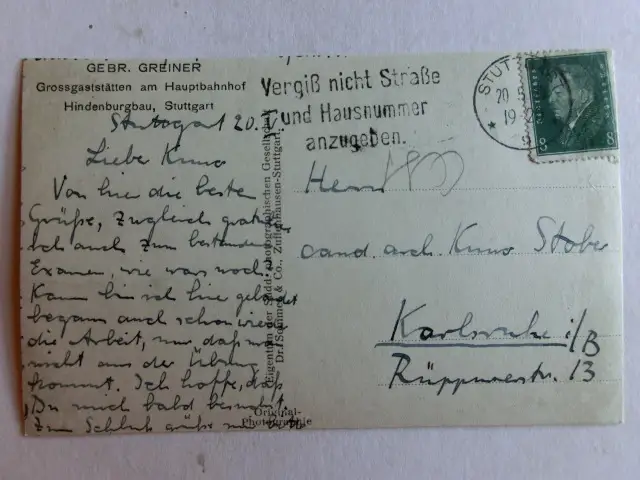 GEBR. GREINER
Grossgaststätten am Hauptbahnhof
Hindenburgbau, Stuttgart
Stuttgart 20.
Liebe Kuno
Von hier die besten
Grüße, zugleich gratulier
ich auch zum bestandenen
Examen, wie war's noch?
Kaum bin ich hier gelandet
begann auch schon wieder
die Arbeit, nur daß man
nicht aus der Übung
kommt. Ich hoffe, daß
Du mich bald besuchst
Zum Schluß grüße
Vergiß nicht Straße
und Hausnummer
anzugeben.
STUT
20
19
8
8
Eigentum der Südd. photographischen Gesellschaft
Dr. Schimmel & Co., Zuffenhausen-Stuttgart.
Original-
Photographie
Herrn
cand. arch. Kuno Stober
Karlsruhe i/B
Rüppurrerstr. 13